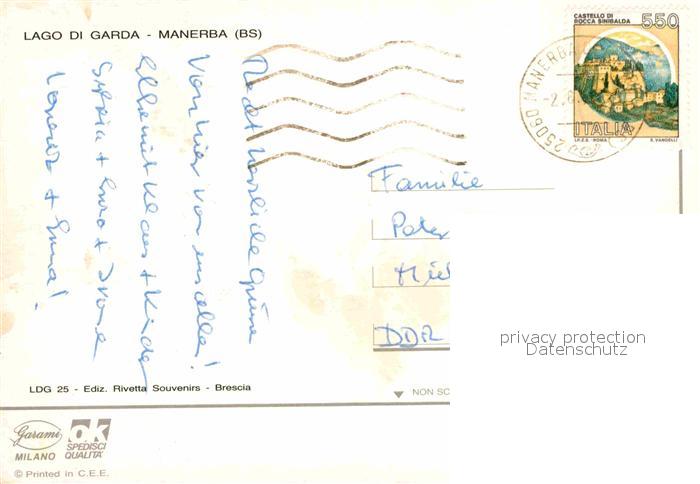 LAGO DI GARDA - MANERBA (BS)
CASTELLO DI
ROCCA SINIBALDA
550
ITALIA
I.P.Z.S. - ROMA E. VANGELLI
25060 MANERBA
-2.8.
Recht herzliche Grüße
Von hier von uns allen!
Klaus + Kinder
Sylvia + Enzo +
+ Emma!
Familie
Peter
DDR
privacy protection
Datenschutz
LDG 25 - Ediz. Rivetta Souvenirs - Brescia
NON SC
Garami
MILANO
ok
SPEDISCI
QUALITÀ
© Printed in C.E.E.